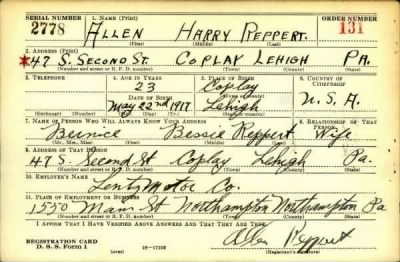 SERIAL NUMBER 1. NAME (Print) ORDER NUMBER
2778 ALLEN HARRY REPPERT. 131
(First) (Middle) (Last)
2. ADDRESS (Print)
*47 S. SECOND ST. COPLAY LEHIGH PA.
(Number and street or R. F. D. number) (Town) (County) (State)
3. TELEPHONE 4. AGE IN YEARS 5. PLACE OF BIRTH 6. COUNTRY OF CITIZENSHIP
23 Coplay
DATE OF BIRTH (Town or county)
May 22nd 1917 Lehigh U.S.A.
(Exchange) (Number) (Mo.) (Day) (Yr.) (State or country)
7. NAME OF PERSON WHO WILL ALWAYS KNOW YOUR ADDRESS 8. RELATIONSHIP OF THAT PERSON
Bernice Bessie Reppert Wife
(Mr., Mrs., Miss) (First) (Middle) (Last)
9. ADDRESS OF THAT PERSON
47 S. Second St Coplay Lehigh Pa.
(Number and street or R. F. D. number) (Town) (County) (State)
10. EMPLOYER'S NAME
Lentz Motor Co.
11. PLACE OF EMPLOYMENT OR BUSINESS
1550 Main St Northampton Northampton Pa
(Number and street or R. F. D. number) (Town) (County) (State)
I AFFIRM THAT I HAVE VERIFIED ABOVE ANSWERS AND THAT THEY ARE TRUE.
REGISTRATION CARD Allen Reppert
D. S. S. Form 1 16—17105 (Registrant's signature)